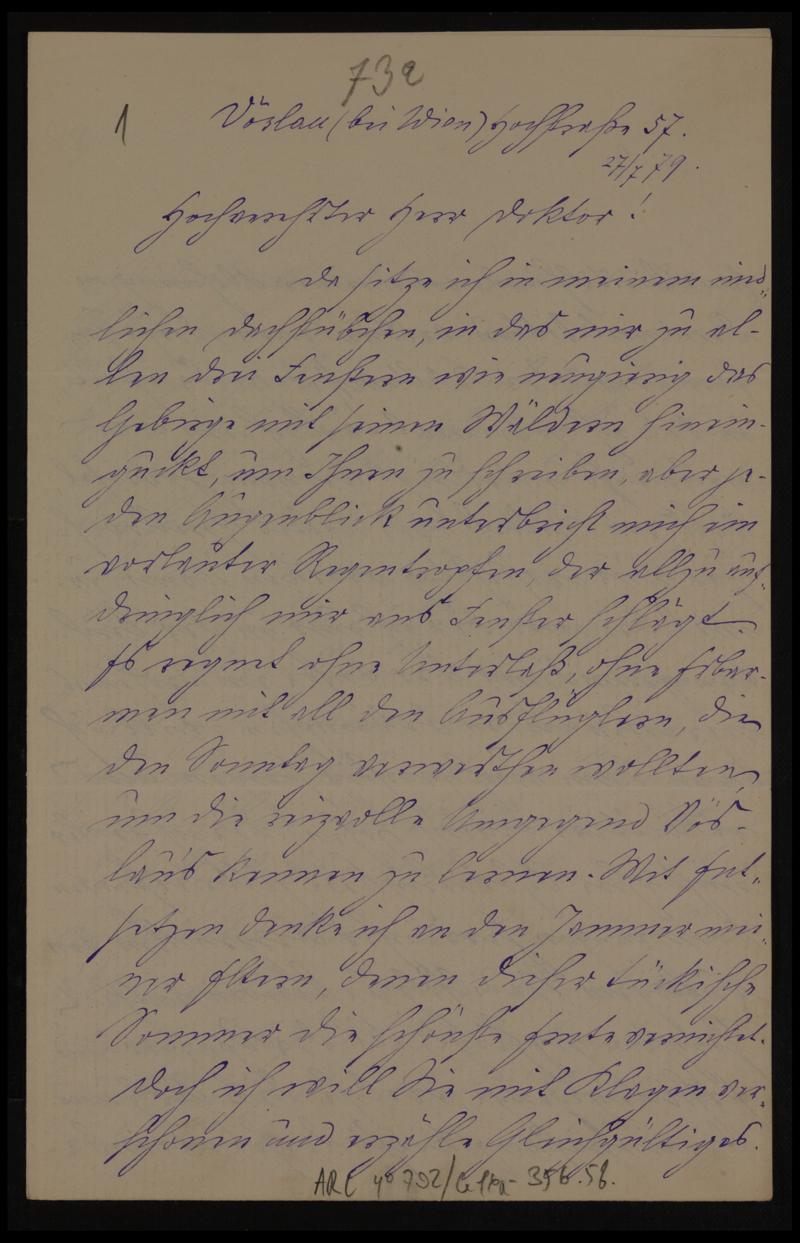 73a
1
Vöslau (bei Wien) Hochstraße 57.
27/7 79.
Hochverehrter Herr Doktor!
Da sitze ich in meinem
lichen Dachstübchen, in das mir zu al-
len drei Fenstern wie neugierig das
Gebirge mit seinen Wäldern hinein-
guckt, um Ihnen zu schreiben, aber je-
den Augenblick unterbricht mich ein
vorlauter Regentropfen, der allzu auf-
dringlich mir ans Fenster schlägt.
Es regnet ohne Unterlaß, ohne Erbar-
men mit all den Ausflüglern, die
den Sonntag verwerthen wollten,
um die reizvolle Umgegend Vös-
lau's kennen zu lernen. Mit Ent-
setzen denke ich an den Jammer mei-
ner Eltern, denen dieser tückische
Sommer die schönste Ernte vernichtet.
Doch ich will Sie mit Klagen ver-
schonen und erzähle Gleichgültiges.